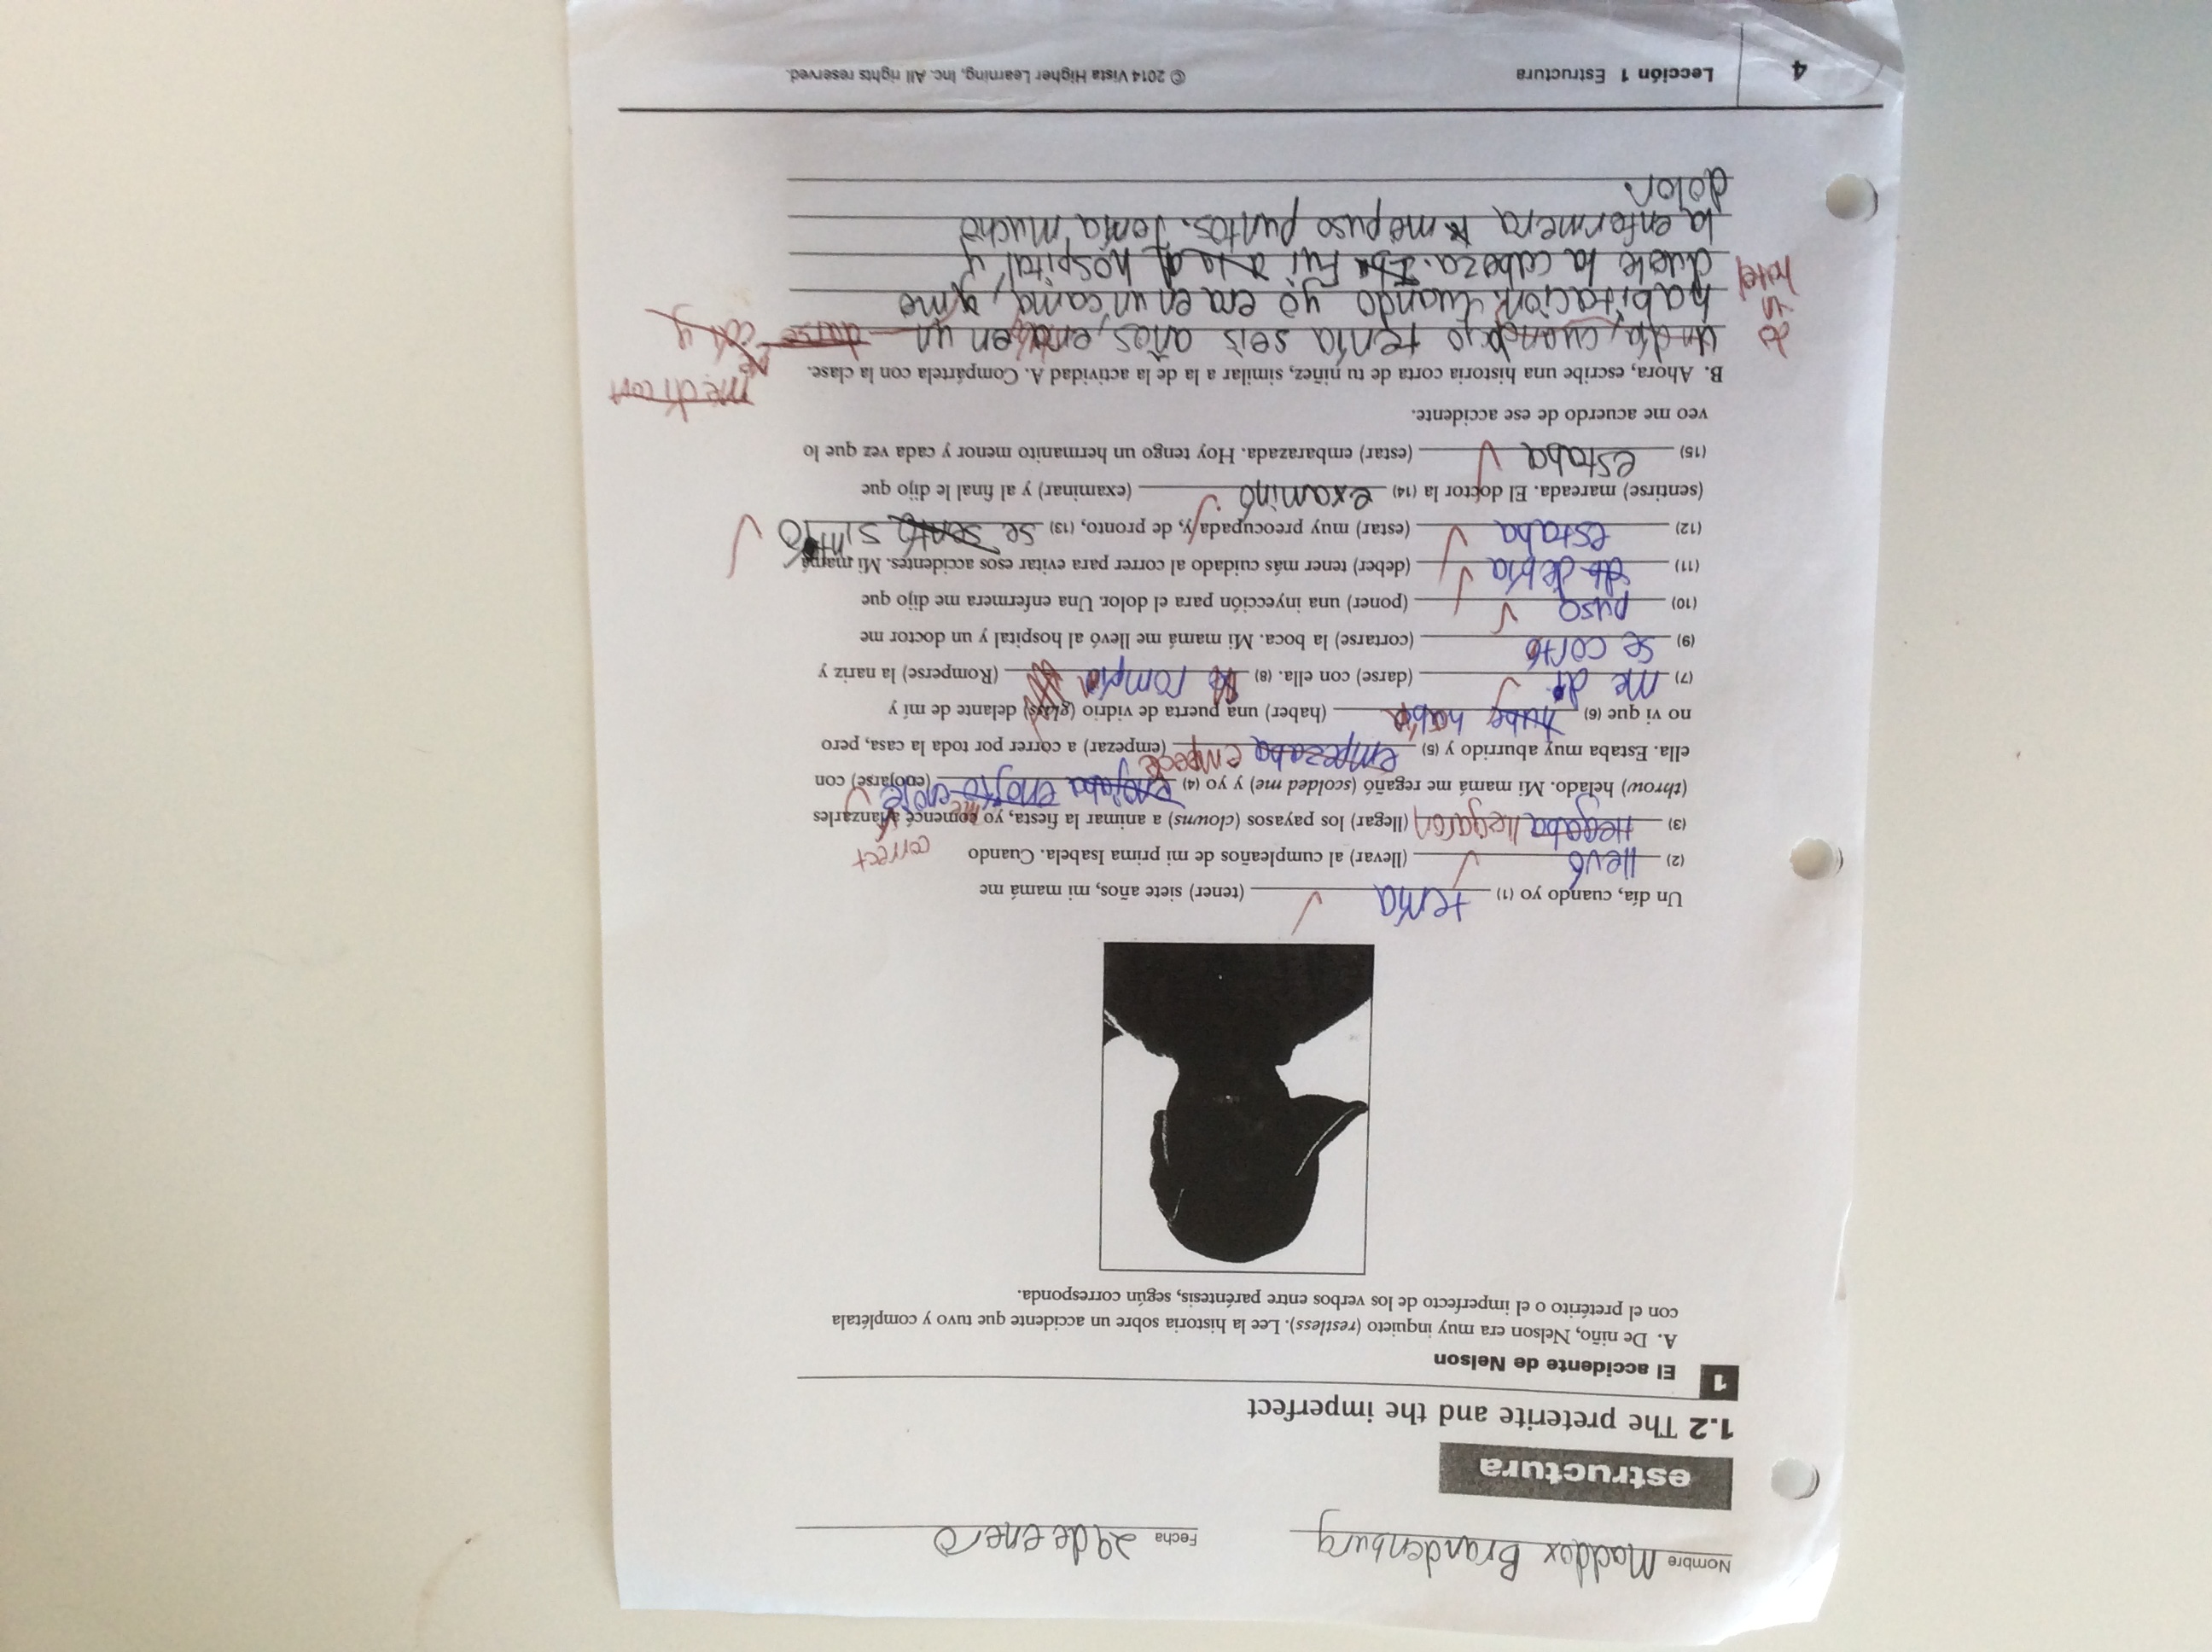 Nombre Maddox Brandenburg Fecha 29 de enero
estructura
1.2 The preterite and the imperfect
1 El accidente de Nelson
A. De niño, Nelson era muy inquieto (restless). Lee la historia sobre un accidente que tuvo y complétala
con el pretérito o el imperfecto de los verbos entre paréntesis, según corresponda.
Un día, cuando yo (1) tenía (tener) siete años, mi mamá me
(2) llevó (llevar) al cumpleaños de mi prima Isabela. Cuando
correct
(3) llegaba llegaron (llegar) los payasos (clowns) a animar la fiesta, yo comencé a lanzarles
(throw) helado. Mi mamá me regañó (scolded me) y yo (4) enojaba enojió me enojé (enojarse) con
ella. Estaba muy aburrido y (5) empezaba empecé (empezar) a correr por toda la casa, pero
no vi que (6) hube había (haber) una puerta de vidrio (glass) delante de mí y
(7) me di (darse) con ella. (8) rompía (Romperse) la nariz y
(9) se cortó (cortarse) la boca. Mi mamá me llevó al hospital y un doctor me
(10) puso (poner) una inyección para el dolor. Una enfermera me dijo que
(11) debía (deber) tener más cuidado al correr para evitar esos accidentes. Mi mamá
(12) estaba (estar) muy preocupada y, de pronto, (13) se sintió
(sentirse) mareada. El doctor la (14) examinó (examinar) y al final le dijo que
(15) estaba (estar) embarazada. Hoy tengo un hermanito menor y cada vez que lo
veo me acuerdo de ese accidente.
B. Ahora, escribe una historia corta de tu niñez, similar a la de la actividad A. Compártela con la clase.
un día, cuando yo tenía seis años, era en un darse
habitación cuando yo era en un cama, y me
de un hotel
duele la cabeza. Fui a la al hospital y
la enfermera me puso puntos. Tenía mucho
dolor.
4 Lección 1 Estructura © 2014 Vista Higher Learning, Inc. All rights reserved.